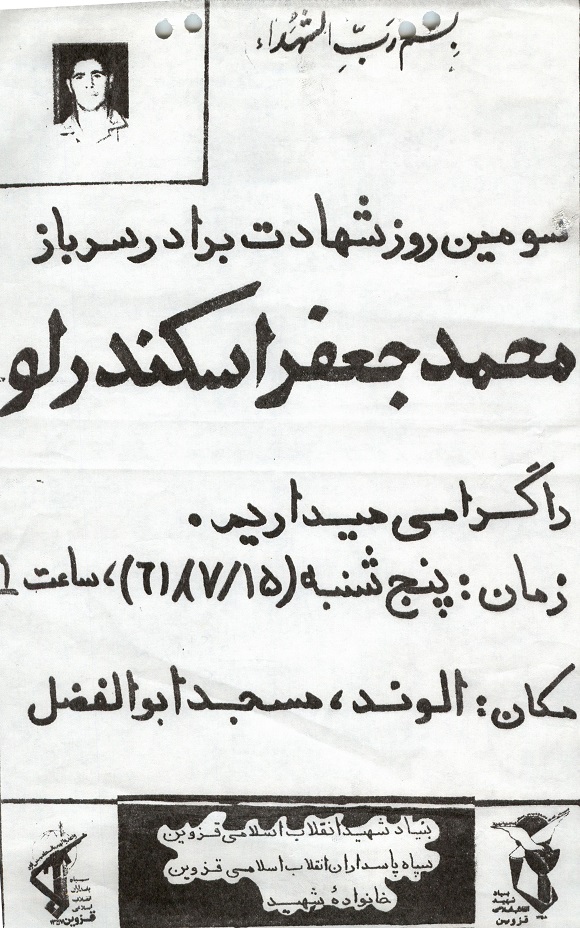 بسم رَبِّ الشهُداء
سومین روز شهادت برادر سرباز
محمد جعفر اسکندرلو
را گرامی میداریم.
زمان: پنج شنبه (۶۱/۷/۱۵)، ساعت ۱
مکان: الوند، مسجد ابوالفضل
بنیاد شهید انقلاب اسلامی قزوین
سپاه پاسداران انقلاب اسلامی قزوین
خانوادهٔ شهید
بنیاد
شهید
انقلاب اسلامی
قزوین
سپاه
پاسداران
انقلاب
اسلامی
قزوین